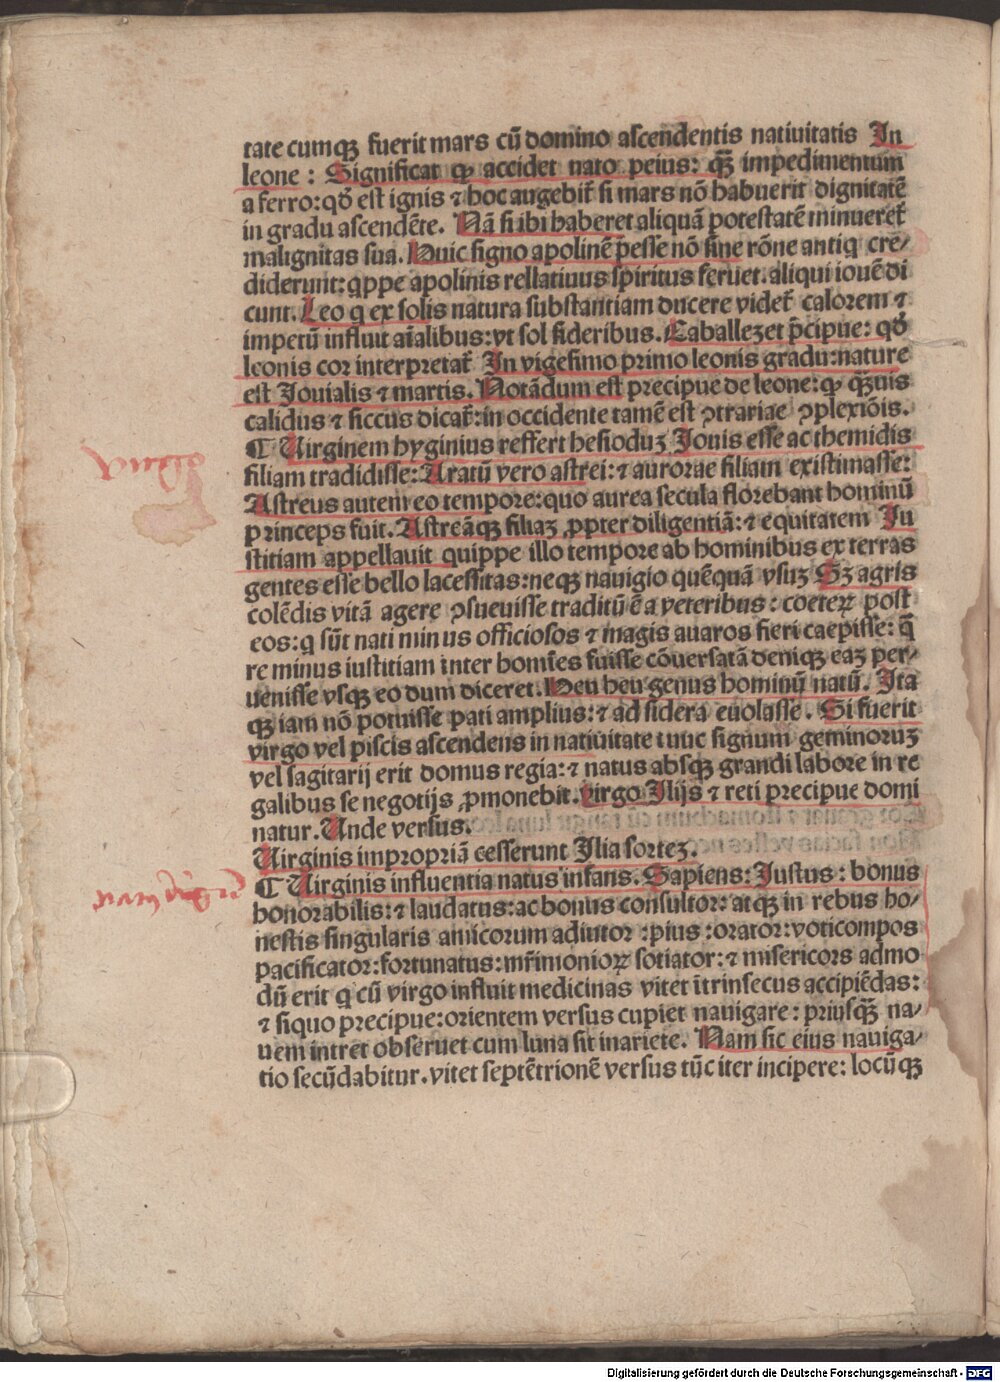 tate cumqꝫ fuerit mars cũ domino ascendentis natiuitatis In
leone : Significat ꝙ accidet nato peius: q̃ȝ impedimentum
a ferro:qð est ignis ⁊ hoc augebit̃ si mars nõ habuerit dignitatẽ
in gradu ascendẽte. Nã si ibi haberet aliquã potestatẽ minueret̃
malignitas sua. Huic signo apolinẽ pesse nõ sine rõne antiq cre/
diderunt: qppe apolinis rellatiuus spiritus feruet. aliqui iouẽ di
cunt. Leo q ex solis natura substantiam ducere videt̃ calorem ⁊
impetũ influit aĩalibus: vt sol sideribus. Caballezet p̃cipue: qð
leonis cor interpretat̃ In vigesimo primo leonis gradu:nature
est Iouialis ⁊ martis. Notãdum est precipue de leone: ꝙ q̃ȝuis
calidus ⁊ siccus dicat̃: in occidente tamẽ est ꝯtrariae ꝯplexiõis.
¶ Uirginem hyginius reffert hesioduȝ Iouis esse ac themidis
filiam tradidisse: Aratũ vero astrei: ⁊ aurorae filiam existimasse:
Astreus autem eo tempore: quo aurea secula florebant hominũ
princeps fuit. Astreãqꝫ filiaȝ ꝓpter diligentiã: ⁊ equitatem Iu
stitiam appellauit quippe illo tempore ab hominibus ex terras
gentes esse bello lacessitas: neqꝫ nauigio quẽquã vsuȝ Sȝ agris
colẽdis vitã agere ꝯsueuisse traditũ ẽ a veteribus : coeteꝝ post
eos: q sũt nati minus officiosos ⁊ magis auaros fieri caepisse: q̃
re minus iustitiam inter homĩes fuisse cõuersatã deniqꝫ eaȝ per/
uenisse vsqꝫ eo dum diceret. Heu heu genus hominũ natũ. Ita
qꝫ iam nõ potuisse pati amplius: ⁊ ad sidera euolasse. Si fuerit
virgo vel piscis ascendens in natiuitate tunc signum geminoruȝ
vel sagitarij erit domus regia: ⁊ natus absqꝫ grandi labore in re
galibus se negotijs ꝓmonebit. virgo Ilijs ⁊ reti precipue domi
natur. Unde versus.
Uirginis impropriã cesserunt Ilia sorteȝ.
¶ Uirginis influentia natus infans. Sapiens: Iustus : bonus
honorabilis: ⁊ laudatus: ac bonus consultor: atqꝫ in rebus ho/
nestis singularis amicorum adiutor :pius :orator: voticompos
pacificator: fortunatus: mr̃imonioꝝ sotiator: ⁊ misericors admo
dũ erit q cũ virgo influit medicinas vitet ĩtrinsecus accipiẽdas:
⁊ siquo precipue: orientem versus cupiet nauigare : priusq̃ȝ na/
uem intret obseruet cum luna sit inariete. Nam sic eius nauiga/
tio secũdabitur. vitet septẽtrionẽ versus tũc iter incipere: locũqꝫ
Digitalisierung gefördert durch die Deutsche Forschungsgemeinschaft - DFG